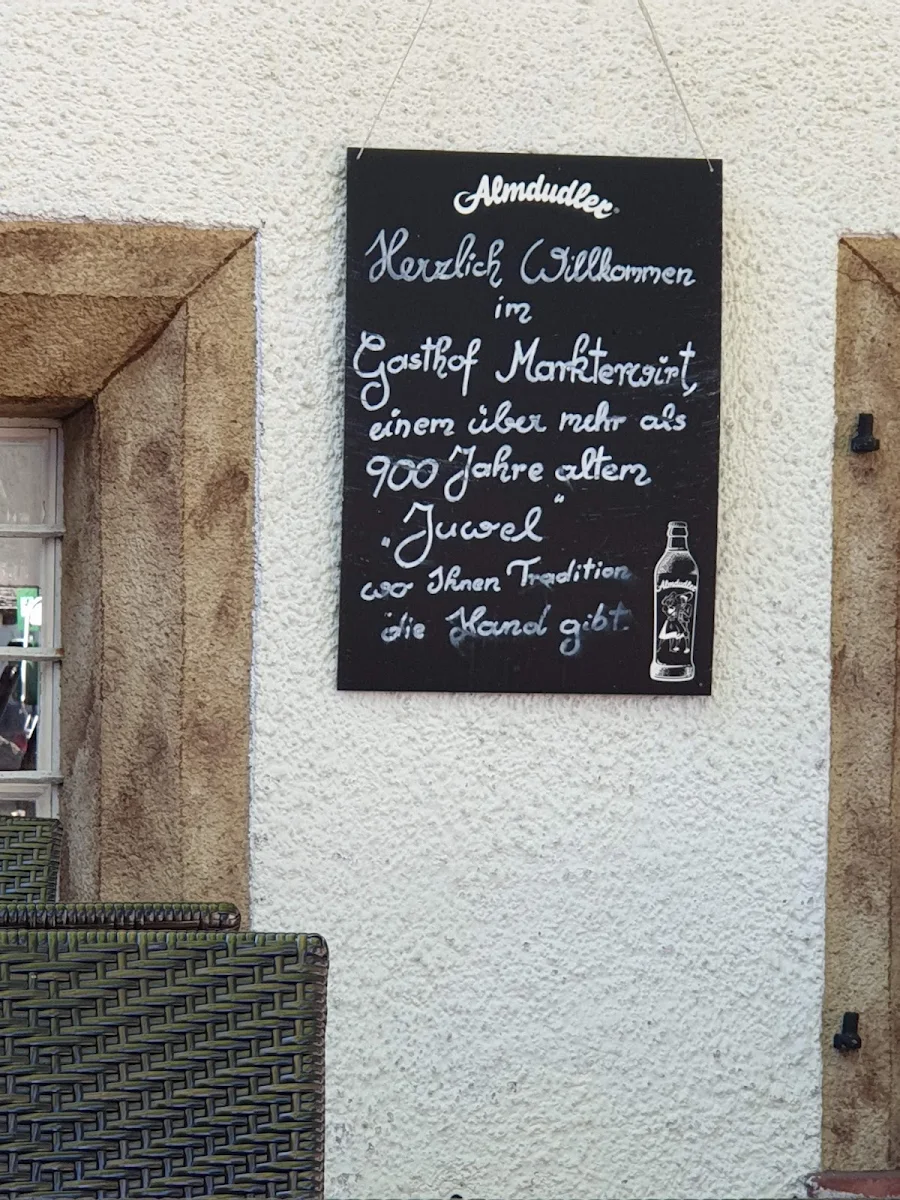 Almdudler
Herzlich Willkommen
im
Gasthof Markterwirt,
einem über mehr als
900 Jahre altem
„Juwel"
wo Ihnen Tradition
die Hand gibt.
Almdudler